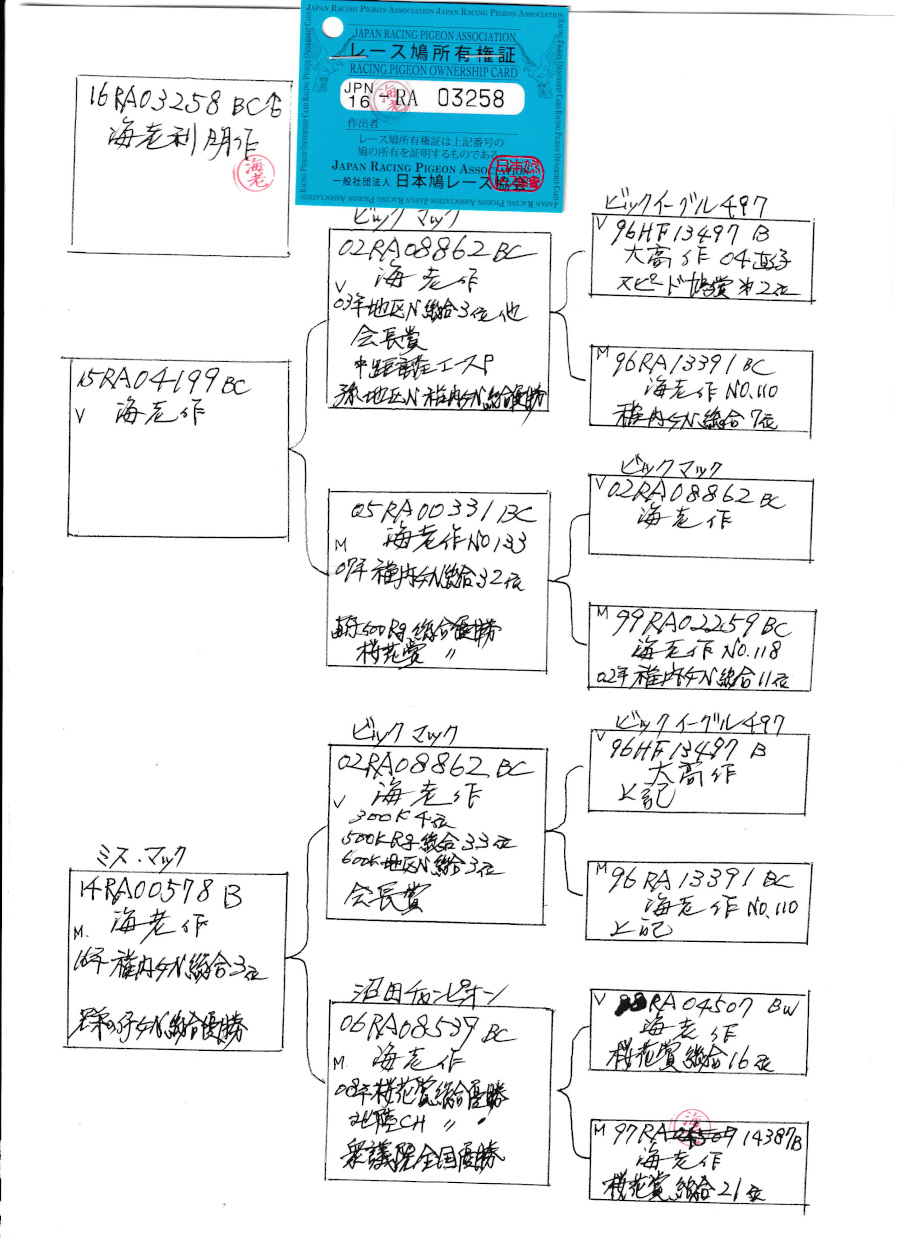 JAPAN RACING PIGEON ASSOCIATION JAPAN RACING PIGEON ASSOCIATION
JAPAN RACING PIGEON ASSOCIATION
レース鳩所有権証
RACING PIGEON OWNERSHIP CARD
JPN
16 -RA 03258
作出者
レース鳩所有権証は上記番号の
鳩の所有を証明するものである
JAPAN RACING PIGEON ASSOCIATION
一般社団法人 日本鳩レース協会
16RA03258 BC♂
海老利明作
海老
15RA04199 BC
V 海老作
ミス・マック
14RA00578 B
M. 海老作
16年稚内GN総合3位
GN総合優勝
ビックマック
02RA08862 BC
V 海老作
03年地区N総合3位他
会長賞
中距離エースP
孫地区N稚内GN総合優勝
05RA00331 BC
M 海老作NO133
07年稚内GN総合32位
500Rg総合優勝
桜花賞 〃
ビックマック
02RA08862 BC
V 海老作
300K 4位
500KRg総合33位
600K地区N総合3位
会長賞
沼田チャンピオン
06RA08539 BC
M 海老作
08年桜花賞総合優勝
北陸CH 〃
衆議院全国優勝
ビックイーグル497
V 96HF13497 B
大高作 04直子
スピード鳩賞2位
M 96RA13391 BC
海老作NO.110
稚内GN総合7位
ビックマック
V 02RA08862 BC
海老作
M 99RA02259 BC
海老作NO.118
02年稚内GN総合11位
ビックイーグル497
V 96HF13497 B
大高作
上記
M 96RA13391 BC
海老作NO.110
上記
V RA04507 BW
海老作
桜花賞総合16位
M 97RA 14387B
海老作
桜花賞総合21位